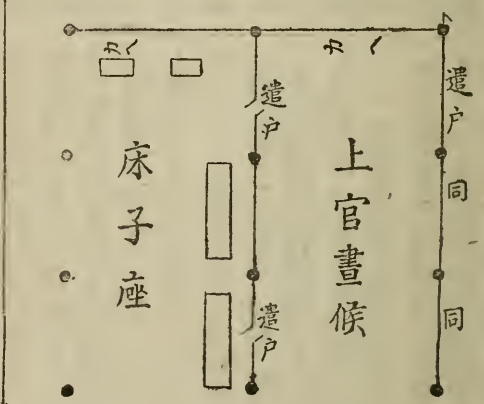 遣戸
同
同
カヘ
上官晝候
遣戸
遣戸
カヘ
床子座